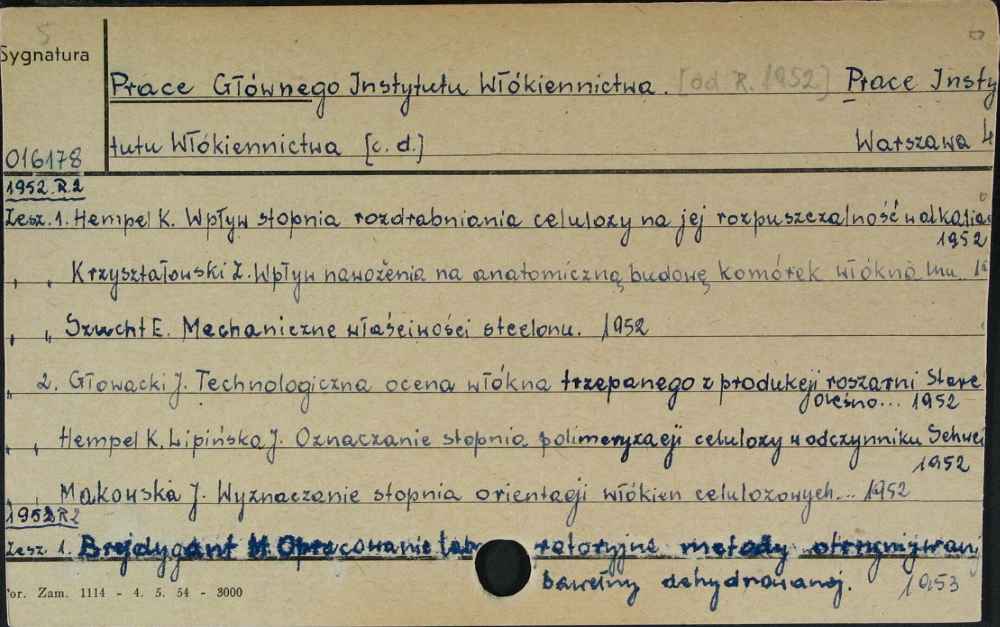 5
Sygnatura
Prace Głównego Instytutu Włókiennictwa. [od R. 1952] Prace Insty
016178 tutu Włókiennictwa [c. d.] Warszawa 4
1952. R.2
Zesz. 1. Hempel K. Wpływ stopnia rozdrabniania celulozy na jej rozpuszczalność w alkalia
1952
" " Krzyształowski Z. Wpływ nawożenia na anatomiczną budowę komórek włókna lnu.
" " Szucht E. Mechaniczne właściwości steelonu. 1952
" 2. Głowacki J. Technologiczna ocena włókna trzepanego z produkcji roszarni Stare
Oleśno... 1952
" " Hempel K. Lipińska J. Oznaczanie stopnia polimeryzacji celulozy w odczynniku Schwei
1952
" " Makowska J. Wyznaczanie stopnia orientacji włókien celulozowych... 1952
1952 R2
Zesz 1. Brejdygant M. Opracowanie labo ratoryjne metody otrzymywani
bawełny dehydrowanej. 1953
or. Zam. 1114 - 4. 5. 54 - 3000